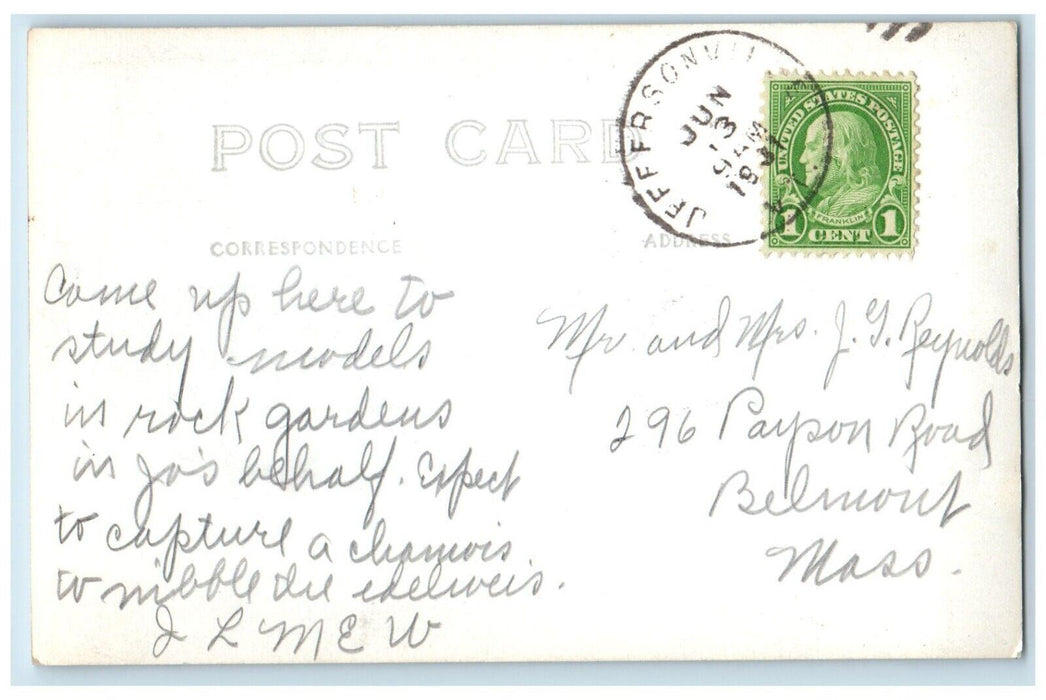 POST CARD
JEFFERSONVIL
JUN
3
9 AM
1931
UNITED STATES POSTAGE
FRANKLIN
1 CENT 1
CORRESPONDENCE
ADDRESS
Come up here to
study models
in rock gardens
in Jo's behalf. Expect
to capture a chamois
to nibble die edelweis.
J L M E W
Mr. and Mrs. J. G. Reynolds
296 Payson Road
Belmont
Mass.